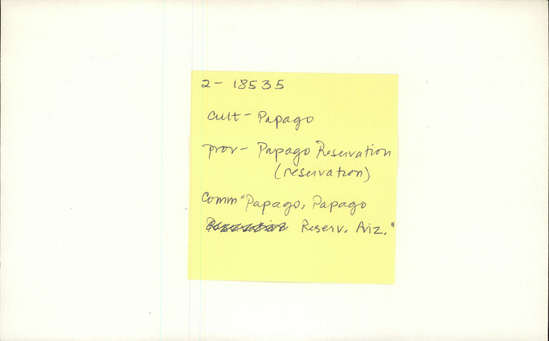 2- 18535
cult- Papago
prov- Papago Reservation
(reservation)
Comm "Papago, Papago
Reserv. Ariz."